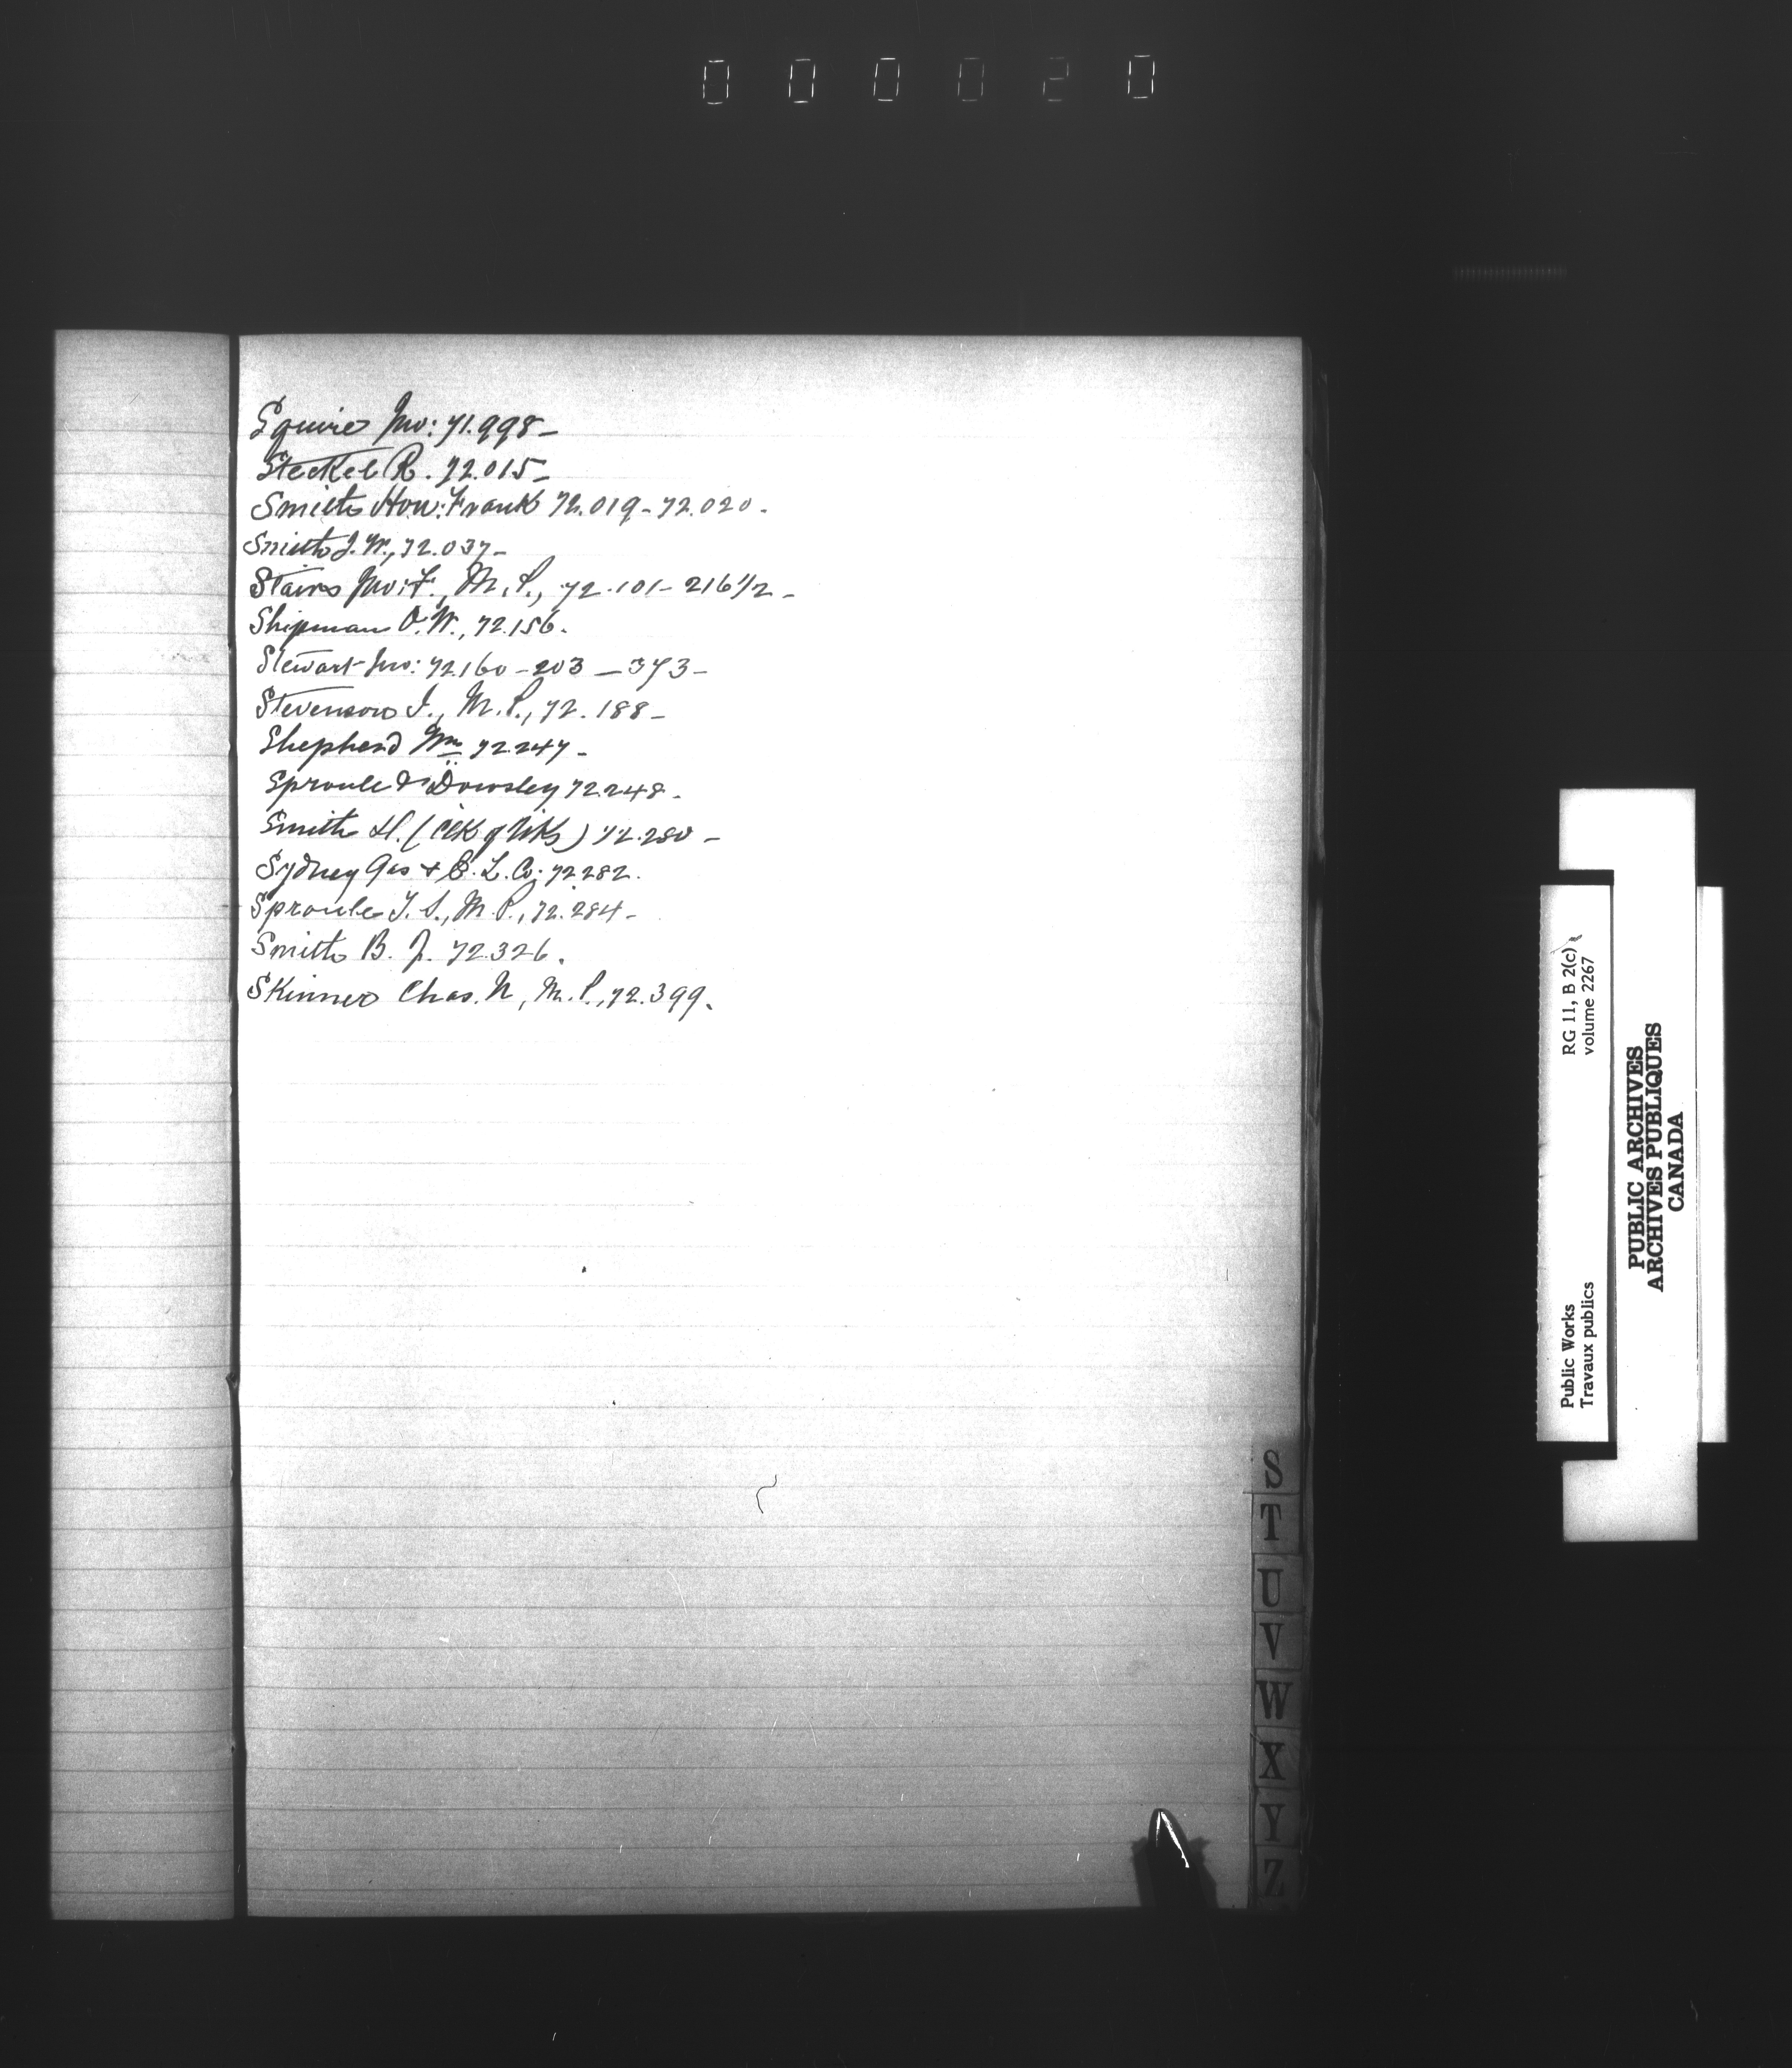 000020
Squire Jno: 71.998-
Steckel R. 72.015-
Smith Hon: Frank 72.019-72.020.
Smith J. W., 72.037-
Stairs Jno: F., M.P., 72.101-216 1/2-
Shipman O.W., 72.156.
Stewart Jno: 72.160-203-373-
Stevenson J., M.P., 72.188-
Shepherd Wm 72.247-
Sproule & Dowsley 72.248.
Smith H. ( ) 72.280-
Sydney Gas & E. L. Co: 72282.
Sproule T. S., M.P., 72.284-
Smith B. J. 72.326.
Skinner Chas. N, M.P., 72.399.
S
T
U
V
W
X
Y
Z
RG 11, B 2(c)
volume 2267
Public Works
Travaux publics
PUBLIC ARCHIVES
ARCHIVES PUBLIQUES
CANADA